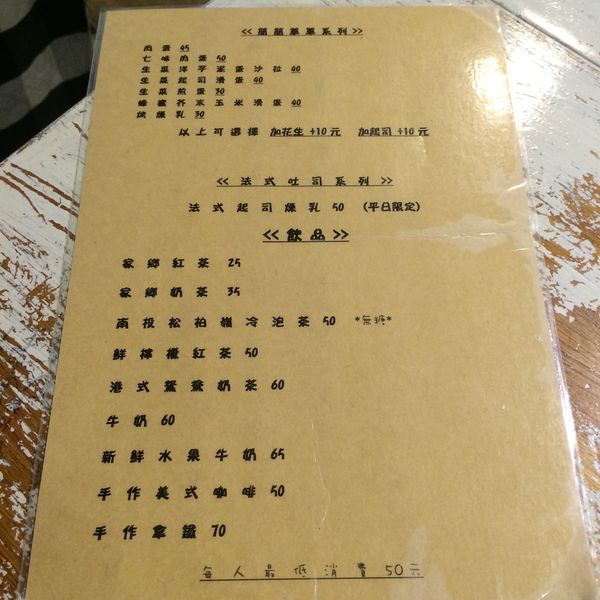 <<簡簡單單系列>>
肉蛋 45
七味肉蛋 50
生菜洋芋泥蛋沙拉 40
生菜起司滑蛋 40
生菜煎蛋 30
蜂蜜芥末玉米滑蛋 40
煉乳 30
以上可選擇 加花生+10元 加起司+10元
<<法式吐司系列>>
法式起司煉乳 50 (平日限定)
<<飲品>>
家鄉紅茶 25
家鄉奶茶 35
南投松柏嶺冷泡茶 50 *無糖*
鮮檸檬紅茶 50
港式鴛鴦奶茶 60
牛奶 60
新鮮水果牛奶 65
手作美式咖啡 50
手作拿鐵 70
每人最低消費50元